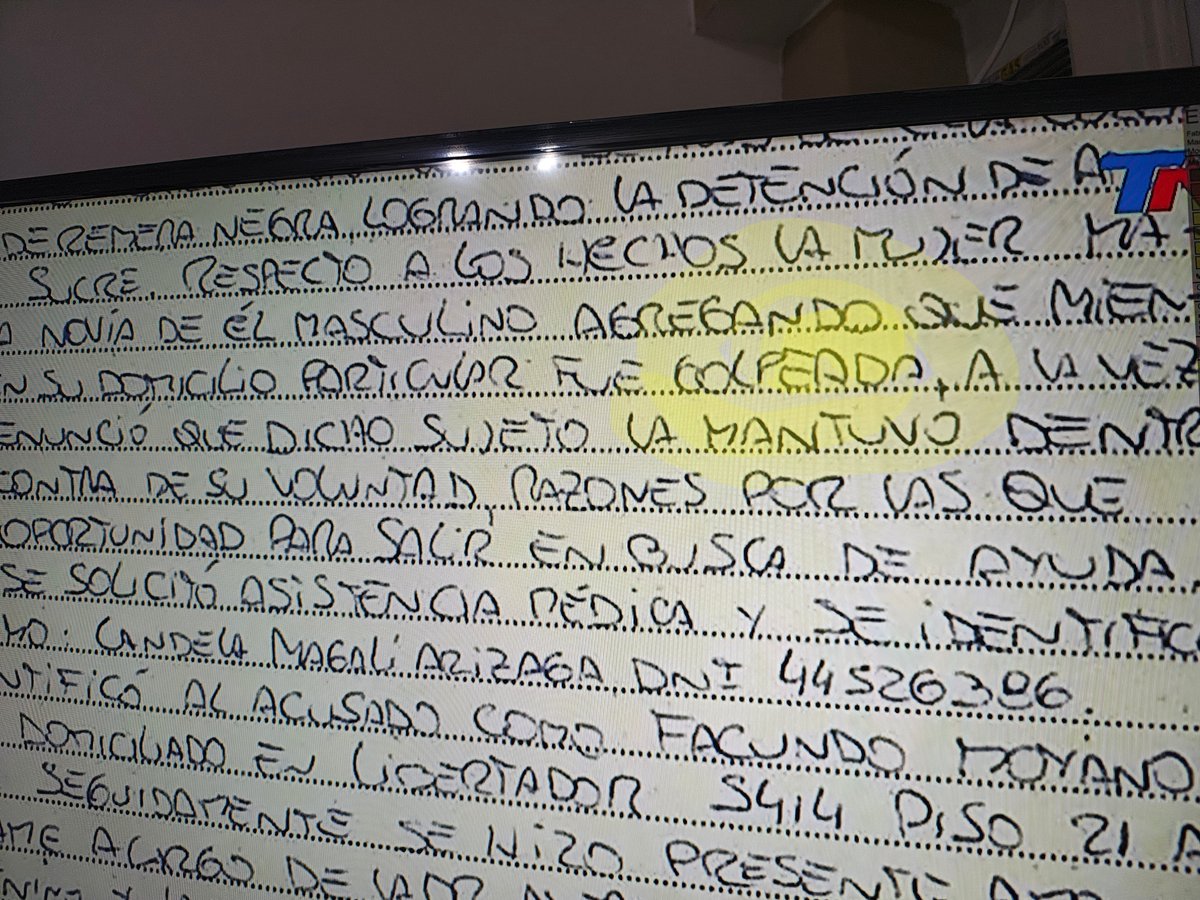 DE REMERA NEGRA, LOGRANDO LA DETENCIÓN DE A
TN
SUCRE. RESPECTO A LOS HECHOS LA MUJER MA-
NOVIA DE ÉL MASCULINO AGREGANDO QUE MIEN
N SU DOMICILIO PARTICULAR FUE GOLPEADA, A LA VEZ
ENUNCIÓ QUE DICHO SUJETO LA MANTUVO DENTR
CONTRA DE SU VOLUNTAD, RAZONES POR LAS QUE
OPORTUNIDAD PARA SALIR EN BUSCA DE AYUDA.
SE SOLICITÓ ASISTENCIA MÉDICA Y SE IDENTIFIC
MO: CANDELA MAGALÍ ARIZAGA, DNI 44526386.
NTIFICÓ AL ACUSADO COMO FACUNDO MOYANO
DOMICILIADO EN LIBERTADOR 5414 PISO 21 A
SEGUIDAMENTE SE HIZO PRESENTE
AME A CARGO DE